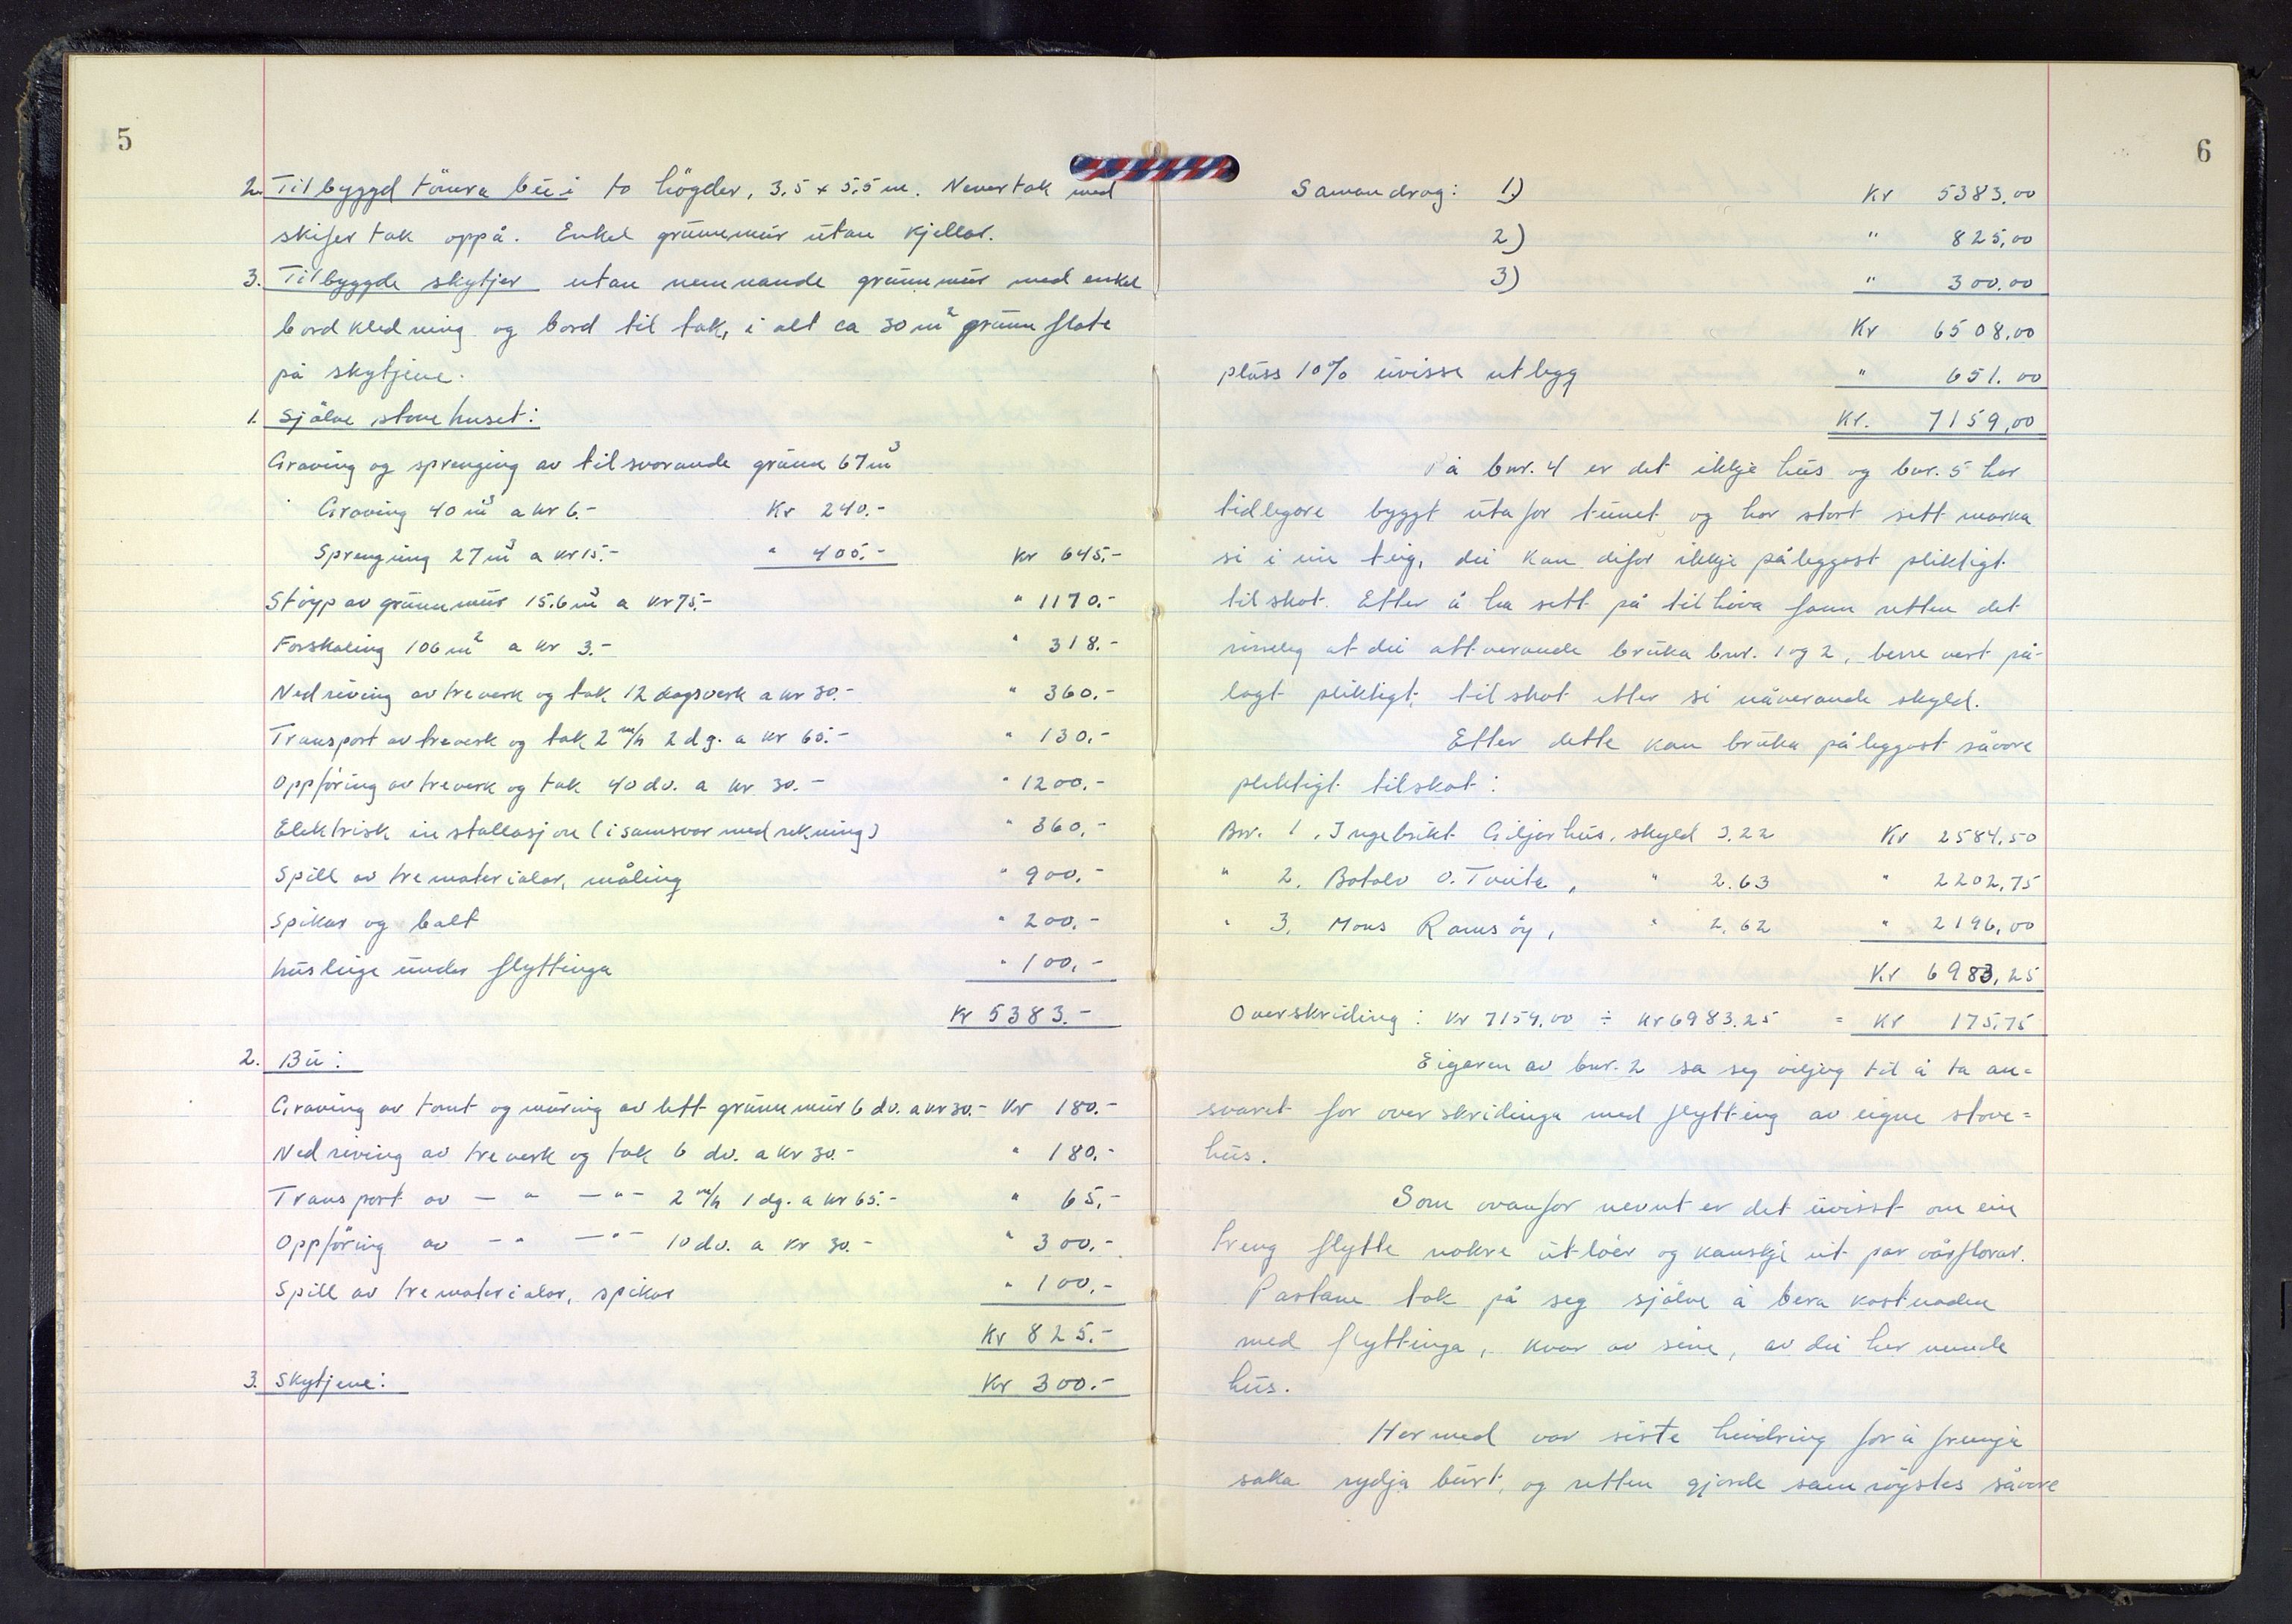 5
2. Tilbyggd tömra bu i to högder, 3,5 x 5,5 m. Nevertak med
skifertak oppå. Enkel grunnmur utan kjellar.
3. Tilbyggde skytjer utan nemnande grunnmur med enkel
bordkledning og bord til tak, i alt ca 30 m² grunnflate
på skytjene.
1. Sjölve stovehuset:
Graving og sprenging av tilsvarande grunn 67 m³
Graving 40 m³ a kr 6.- Kr 240.-
Sprenging 27 m³ a kr 15.- " 405.- Kr 645.-
Stöyp av grunnmur 15.6 m³ a kr 75.- " 1170.-
Forskaling 106 m² a kr 3.- " 318.-
Nedriving av treverk og tak 12 dagsverk a kr 30.- " 360.-
Transport av treverk og tak 2 m/h 2 dg. a kr 65.- " 130.-
Oppföring av treverk og tak 40 dv. a kr 30.- " 1200.-
Elektrisk installasjon (i samsvar med rekning) " 360,-
Spill av trematerialar, måling " 900,-
Spikar og bolt " 200,-
Husleige under flyttinga " 100,-
Kr 5383.-
2. Bu:
Graving av tomt og muring av lett grunnmur 6 dv. a kr 30.- Kr 180.-
Nedriving av treverk og tak 6 dv. a kr 30.- " 180,-
Transport av — " — " — 2 m/h 1 dg. a kr 65.- " 65,-
Oppföring av — " — " — 10 dv. a kr 30.- " 300,-
Spill av trematerialar, spikar " 100,-
Kr 825.-
3. Skytjene: Kr 300.-
6
Samandrag: 1) Kr 5383,00
2) " 825,00
3) " 300.00
Kr 6508,00
pluss 10% uvisse utlegg " 651.00
Kr. 7159,00
På bnr. 4 er det ikkje hus og bnr. 5 har
tidlegare byggt utafor tunet og har stort sett marka
si i ein teig, dei kan difor ikkje påleggast pliktigt
tilskot. Etter å ha sett på tilhöva fann retten det
rimeleg at dei attverande bruka bnr. 1 og 2, berre vert på-
lagt pliktigt tilskot etter si nåverande skyld.
Etter dette kan bruka påleggast såvore
pliktigt tilskot:
Bnr. 1, Ingebrikt Giljarhus, skyld 3.22 Kr 2584,50
" 2. Botolv O. Tveite, " 2.63 " 2202,75
" 3, Mons Ramsöy, " 2,62 " 2196,00
Kr 6983,25
Overskriding: Kr 7159,00 ÷ kr 6983.25 = Kr 175,75
Eigaren av bnr. 2 sa seg viljug til å ta an=
svaret for overskridinga med flytting av eigne stove=
hus.
Som ovanfor nevnt er det uvisst om ein
treng flytte nokre utlöer og kanskje eit par vårflorar.
Partane tok på seg sjölve å bera kostnaden
med flyttinga, kvar av sine, av dei her nemnde
hus.
Hermed var siste hindring for å fremja
saka rydja burt, og retten gjorde samröystes såvore